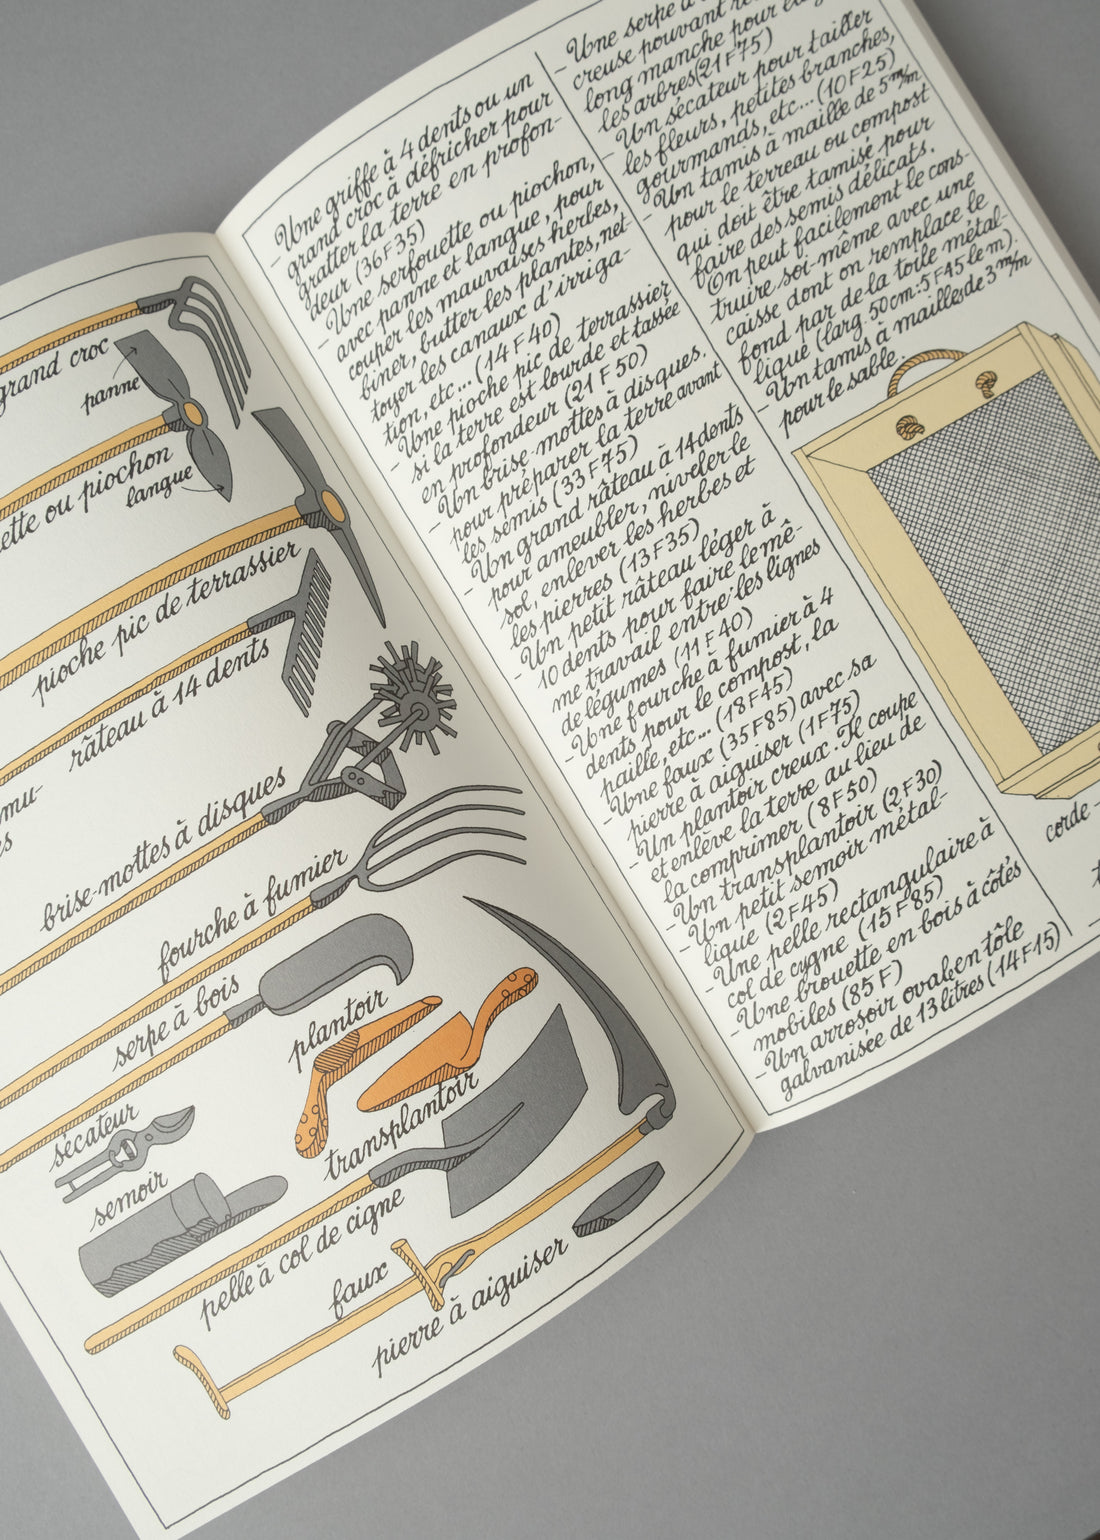 grand croc
panne
ette ou piochon
langue
pioche pic de terrassier
râteau à 14 dents
mu-
es
brise-mottes à disques
fourche à fumier
serpe à bois
plantoir
sécateur
transplantoir
semoir
pelle à col de cigne
faux
pierre à aiguiser
- Une griffe à 4 dents ou un
grand croc à défricher pour
gratter la terre en profon-
deur (36F35)
- Une serfouette ou piochon,
avec panne et langue, pour
couper les mauvaises herbes,
biner, butter les plantes, net-
toyer les canaux d'irriga-
tion, etc... (14F40)
- Une pioche pic de terrassier
si la terre est lourde et tassée
en profondeur (21F50)
- Un brise-mottes à disques.
pour préparer la terre avant
les semis (33F75)
- Un grand râteau à 14 dents
pour ameubler, niveler le
sol, enlever les herbes et
les pierres (13F35)
- Un petit râteau léger à
10 dents pour faire le mê-
me travail entre les lignes
de légumes (11F40)
- Une fourche à fumier à 4
dents pour le compost, la
paille, etc... (18F45)
- Une faux (35F85) avec sa
pierre à aiguiser (1F75)
- Un plantoir creux. Il coupe
et enlève la terre au lieu de
la comprimer (8F50)
- Un transplantoir (2F30)
- Un petit semoir métal-
lique (2F45)
- Une pelle rectangulaire à
col de cygne (15F85)
- Une brouette en bois à côtés
mobiles (85F)
- Un arrosoir ovale en tôle
galvanisée de 13 litres (14F15)
- Une serpe à
creuse pouvant
long manche pour
les arbres (21F75)
- Un sécateur pour tailler
les fleurs, petites branches,
gourmands, etc... (10F25)
- Un tamis à maille de 5 m/m
pour le terreau ou compost
qui doit être tamisé pour
faire des semis délicats.
On peut facilement le cons-
truire soi-même avec une
caisse dont on remplace le
fond par de la toile métal-
lique (larg. 50cm: 5F45 le m).
- Un tamis à mailles de 3 m/m
pour le sable.
corde